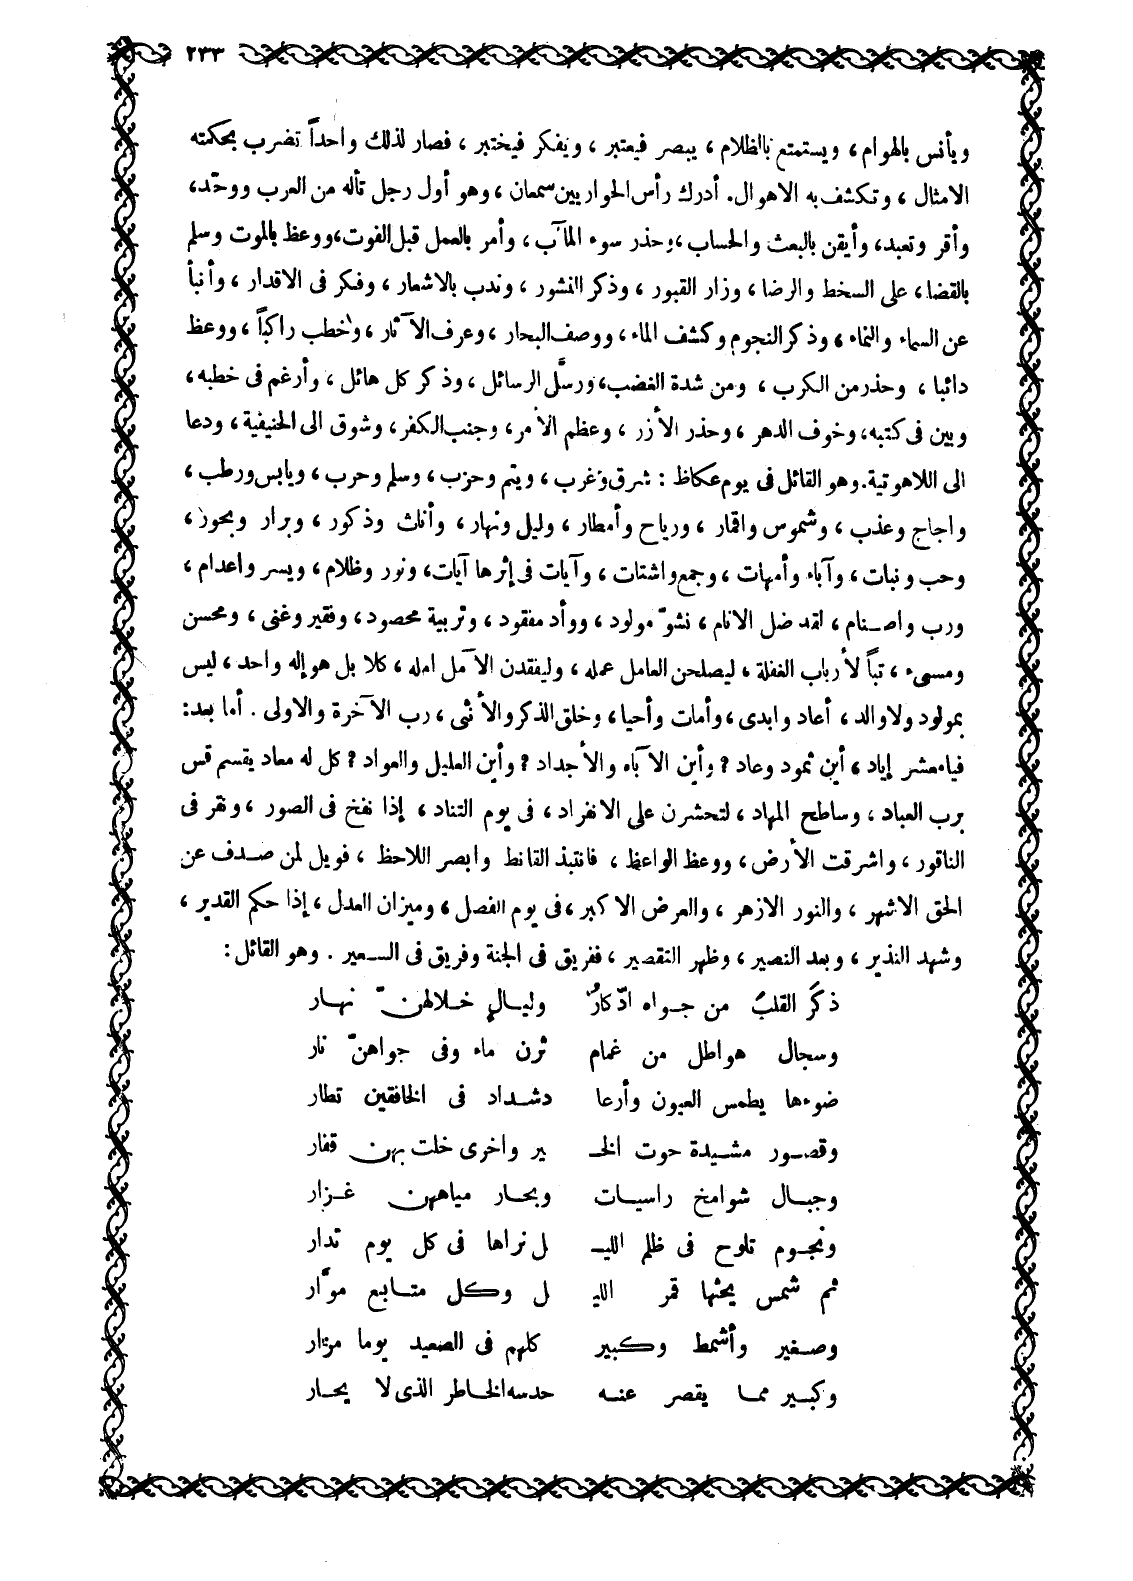 ٢٣٣
ويأنس بالهوام، ويستمتع بالظلام، يبصر فيعتبر، ويفكر فيختبر، فصار لذلك واحداً تضرب بحكمته
الامثال، وتكشف به الاهوال. أدرك رأس الحواريين سمعان، وهو أول رجل تأله من العرب ووحّد،
وأقر وتعبد، وأيقن بالبعث والحساب، وحذر سوء المآب، وأمر بالعمل قبل الفوت، ووعظ بالموت وسلم
بالقضا، على السخط والرضا، وزار القبور، وذكر النشور، وندب بالاشعار، وفكر فى الاقدار، وأنبأ
عن السماء والنماء، وذكر النجوم وكشف الماء، ووصف البحار، وعرف الآثار، وخطب راكباً، ووعظ
دائبا، وحذر من الكرب، ومن شدة الغضب، ورسّل الرسائل، وذكر كل هائل، وأرغم فى خطبه،
وبين فى كتبه، وخوف الدهر، وحذر الأزر، وعظم الأمر، وجنب الكفر، وشوق الى الحنيفية، ودعا
الى اللاهوتية. وهو القائل فى يوم عكاظ: شرق وغرب، ويتم وحزب، وسلم وحرب، ويابس ورطب،
واجاج وعذب، وشموس واقمار، ورياح وأمطار، وليل ونهار، وأناث وذكور، وبرار وبحور،
وحب ونبات، وآباء وأمهات، وجمع واشتات، وآيات فى إثرها آيات، ونور وظلام، ويسر واعدام،
ورب واصنام، لقد ضل الانام، نشوّ مولود، ووأد مفقود، وتربية محصود، وفقير وغنى، ومحسن
ومسىء، تباً لأرباب الغفلة، ليصلحن العامل عمله، وليفقدن الآمل امله، كلا بل هو إله واحد، ليس
بمولود ولا والد، أعاد وابدى، وأمات وأحيا، وخلق الذكر والأنثى، رب الآخرة والاولى. أما بعد:
فيا معشر إياد، أين ثمود وعاد؟ وأين الآباء والأجداد؟ وأين العليل والعواد؟ كل له معاد يقسم قس
برب العباد، وساطح المهاد، لتحشرن على الانفراد، فى يوم التناد، إذا نفخ فى الصور، ونقر فى
الناقور، واشرقت الأرض، ووعظ الواعظ، فانتبذ القانط وابصر اللاحظ، فويل لمن صدف عن
الحق الاشهر، والنور الازهر، والعرض الاكبر، فى يوم الفصل، وميزان العدل، إذا حكم القدير،
وشهد النذير، وبعد النصير، وظهر التقصير، ففريق فى الجنة وفريق فى السعير. وهو القائل:
ذكَر القلبُ من جواه ادّكارُ وليالٍ خلالهنّ نهار
وسجال هواطل من غمام ثرن ماء وفى جواهنّ نار
ضوءها يطمس العيون وأرعا دشداد فى الخافقين تطار
وقصور مشيدة حوت الخـ ير واخرى خلت بهن قفار
وجبال شوامخ راسيات وبحار مياههن غزار
ونجوم تلوح فى ظلم الليـ ل نراها فى كل يوم تدار
ثم شمس يحثها قمر الليـ ل وكل متابع موّار
وصغير وأشمط وكبير كلهم فى الصعيد يوما مزار
وكبير مما يقصر عنه حدسه الخاطر الذى لا يحار